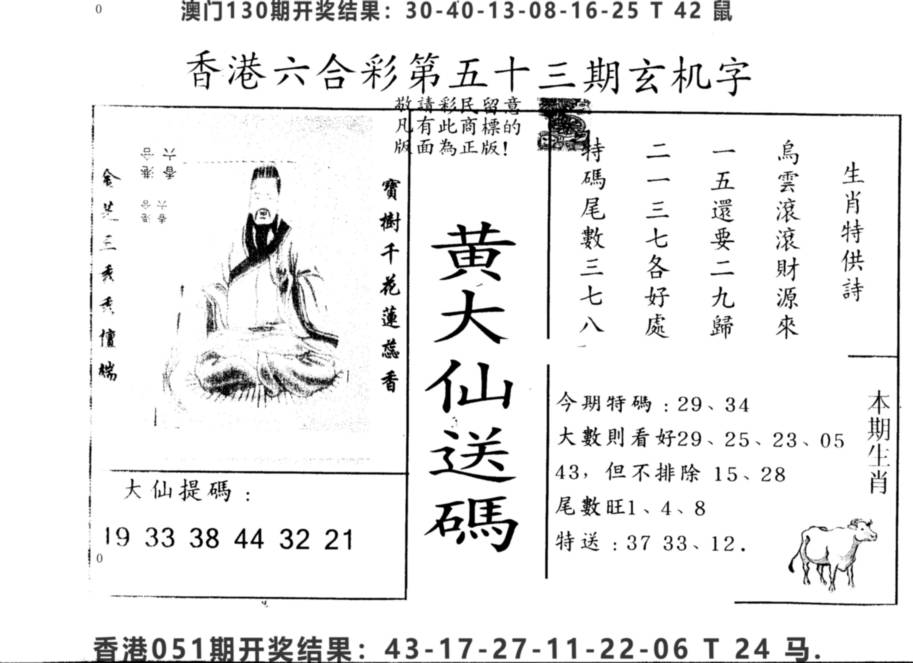 澳门130期开奖结果：30-40-13-08-16-25 T 42 鼠
香港六合彩第五十三期玄机字
敬請彩民留意
凡有此商標的
版面為正版！
生肖特供詩
烏雲滾滾財源來
一五還要二九歸
二一三七各好處
特碼尾數三七八
黄大仙送碼
寶樹千花蓮蕊香
大仙提碼：
19 33 38 44 32 21
本期生肖
今期特碼：29、34
大數則看好29、25、23、05
43，但不排除 15、28
尾數旺1、4、8
特送：37 33、12．
香港051期开奖结果：43-17-27-11-22-06 T 24 马.